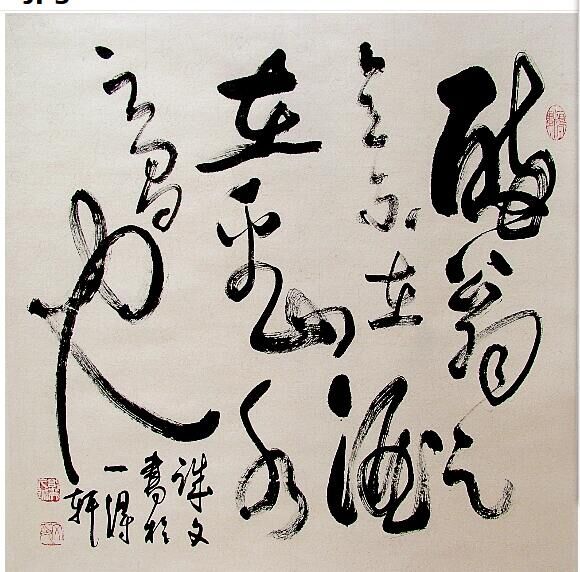 醉翁之
意不在酒
在乎山水
之間也
文
書於
一得
軒